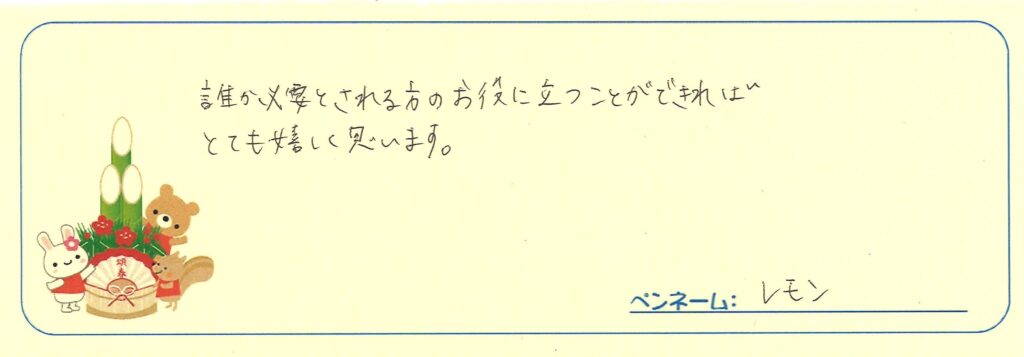 誰か必要とされる方のお役に立つことができれば
とても嬉しく思います。
頌春
ペンネーム: レモン